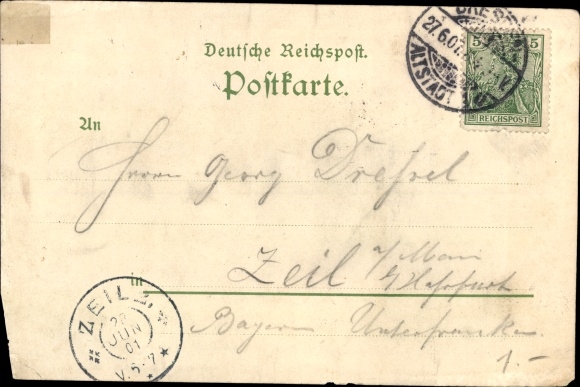 DRESDEN
27.6.01
ALTSTADT
5 5
REICHSPOST
Deutsche Reichspost.
Postkarte.
An
Herrn Georg Dressel
Zeil a/Main
in
Bayern Unterfranken
ZEIL
JUN
01
1.-